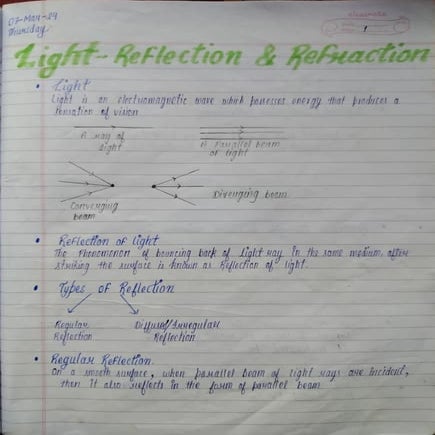 07-Mar-24
Thursday.
classmate
1
Light - Reflection & Refraction
• Light
Light is an electromagnetic wave which possesses energy that produces a
sensation of vision
A ray of
light
A Parallel beam
of light
Converging
beam
Diverging beam
• Reflection of light
The Phenomenon of bouncing back of light ray in the same medium, after
striking the surface is known as Reflection of light.
• Types of Reflection
Regular
Reflection
Diffused/Irregular
Reflection
• Regular Reflection.
On a smooth surface, when parallel beam of light rays are incident,
then it also reflects in the form of parallel beam